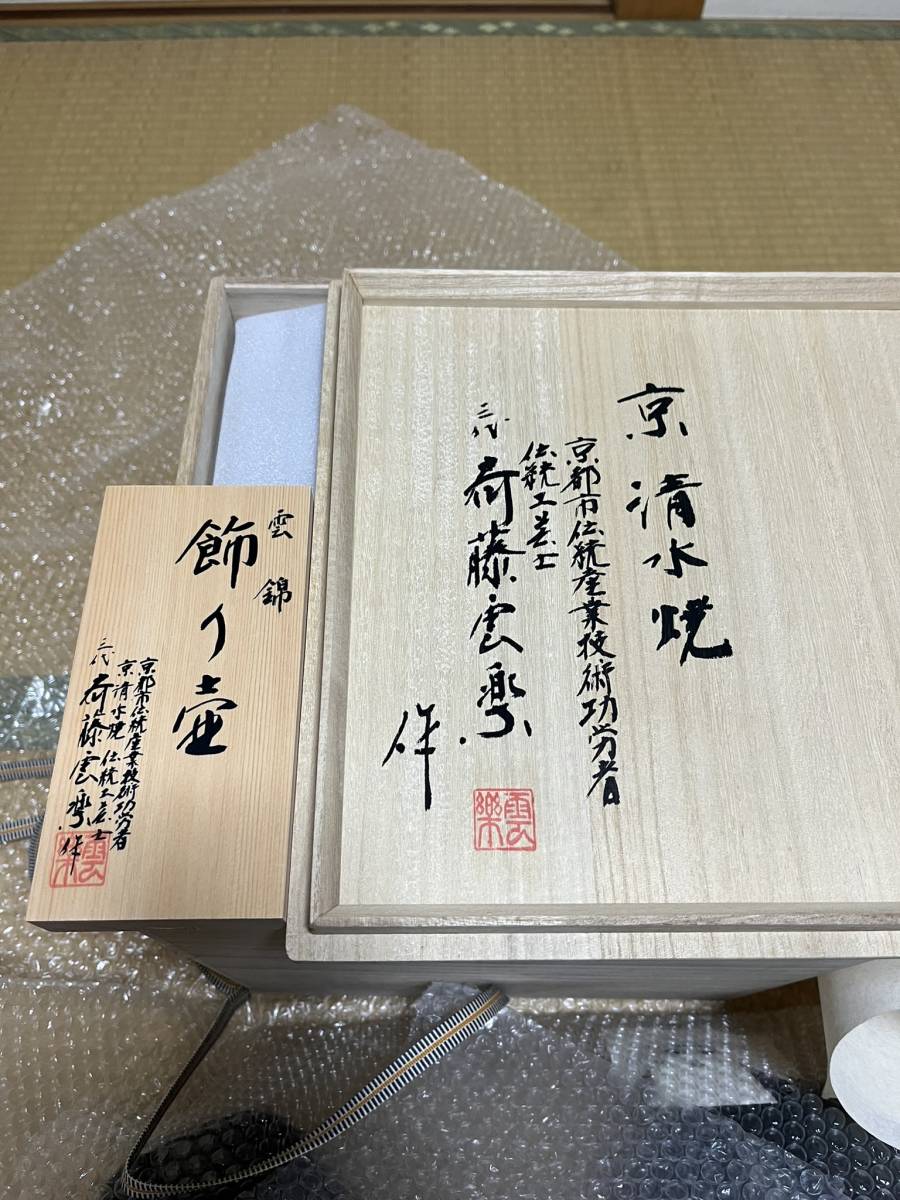 京 清水焼
京都市伝統産業技術功労者
伝統工芸士
三代 斎藤雲楽 作
雲楽
雲錦
飾り壺
京都市伝統産業技術功労者
京清水焼 伝統工芸士
三代 斎藤雲楽 作
雲楽